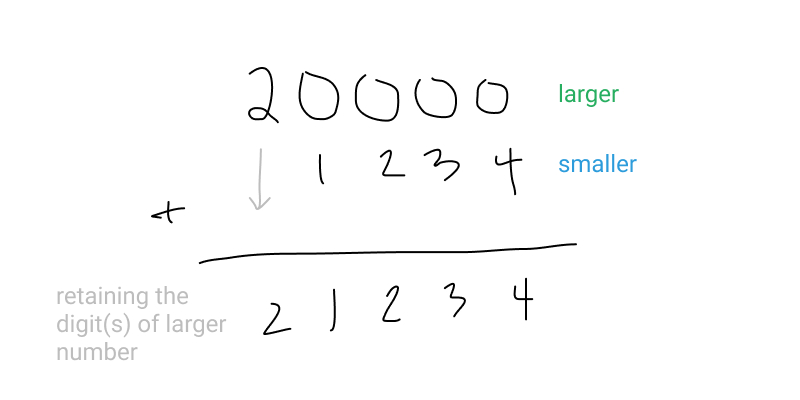 20000 larger
1234 smaller
+
retaining the
digit(s) of larger
number
21234